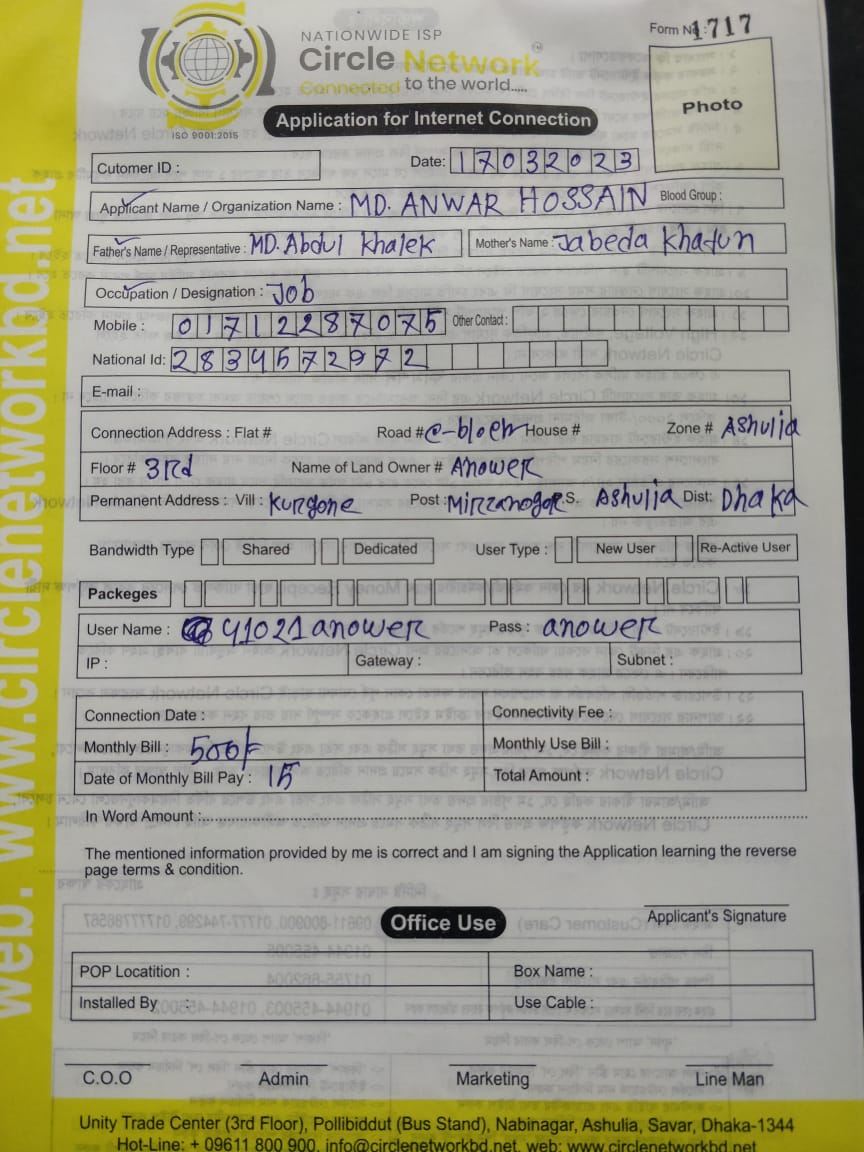 NATIONWIDE ISP
Circle Network
Connected to the world.....
ISO 9001:2015
Form No: 1717
Photo
Application for Internet Connection
Cutomer ID :
Date: 17032023
Applicant Name / Organization Name : MD. ANWAR HOSSAIN Blood Group :
Father's Name / Representative : MD. Abdul Khalek Mother's Name : Jabeda Khatun
Occupation / Designation : Job
Mobile : 01712287075 Other Contact :
National Id: 2834572972
E-mail :
Connection Address : Flat # Road # House # Zone # Ashulia
Floor # 3Rd Name of Land Owner # Anower
Permanent Address : Vill : Kurgone Post : Mirzanogor P.S. Ashulia Dist: Dhaka
Bandwidth Type Shared Dedicated User Type : New User Re-Active User
Packeges
User Name : 41021anower Pass : anower
IP : Gateway : Subnet :
Connection Date : Connectivity Fee :
Monthly Bill : 500/= Monthly Use Bill :
Date of Monthly Bill Pay : 15 Total Amount :
In Word Amount :
The mentioned information provided by me is correct and I am signing the Application learning the reverse
page terms & condition.
Applicant's Signature
Office Use
POP Locatition : Box Name :
Installed By : Use Cable :
C.O.O Admin Marketing Line Man
Unity Trade Center (3rd Floor), Pollibiddut (Bus Stand), Nabinagar, Ashulia, Savar, Dhaka-1344
Hot-Line: + 09611 800 900, info@circlenetworkbd.net, web: www.circlenetworkbd.net
web. www.circlenetworkbd.net